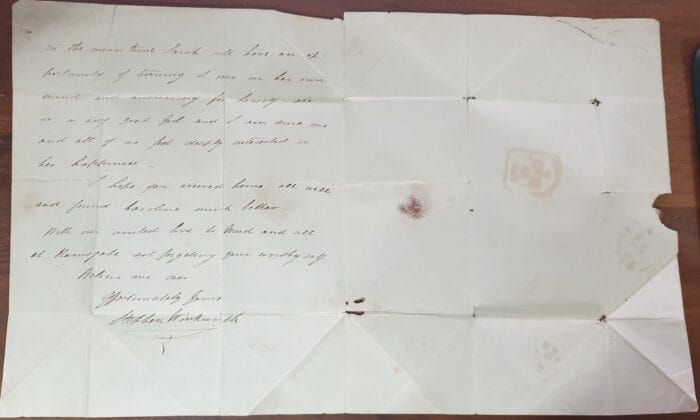 in the mean time Sarah will have an op-
portunity of turning it over in her own
mind and answering for herself - she
is a very good Girl and I am sure one
and all of us feel deeply interested in
her happiness -
I hope you arrived home all well
and found Caroline much better -
With our united love to and all
at Ramsgate not forgetting your worthy self
Believe me ever
Affectionately Yours
Stephen Winkworth